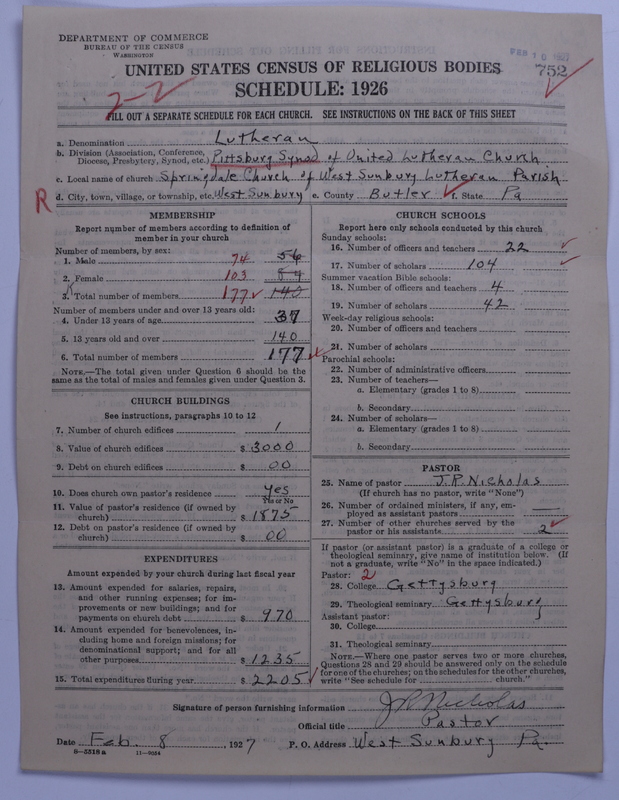 DEPARTMENT OF COMMERCE
BUREAU OF THE CENSUS
WASHINGTON
FEB 10 1927
752
UNITED STATES CENSUS OF RELIGIOUS BODIES
SCHEDULE: 1926
2-2
FILL OUT A SEPARATE SCHEDULE FOR EACH CHURCH. SEE INSTRUCTIONS ON THE BACK OF THIS SHEET
a. Denomination Lutheran
b. Division (Association, Conference, Diocese, Presbytery, Synod, etc.) Pittsburg Synod of United Lutheran Church
c. Local name of church Springdale Church of West Sunbury Lutheran Parish
R d. City, town, village, or township, etc. West Sunbury e. County Butler f. State Pa
MEMBERSHIP
Report number of members according to definition of
member in your church
Number of members, by sex:
1. Male 74 56
2. Female 103 84
3. Total number of members 177 140
Number of members under and over 13 years old:
4. Under 13 years of age 37
5. 13 years old and over 140
6. Total number of members 177
NOTE.—The total given under Question 6 should be
same as the total of males and females given under Question 3.
CHURCH BUILDINGS
See instructions, paragraphs 10 to 12
7. Number of church edifices 1
8. Value of church edifices $ 3000
9. Debt on church edifices $ 00
10. Does church own pastor's residence Yes
Yes or No
11. Value of pastor's residence (if owned by
church) $ 1875
12. Debt on pastor's residence (if owned by
church) $ 00
EXPENDITURES
Amount expended by your church during last fiscal year
13. Amount expended for salaries, repairs,
and other running expenses; for im-
provements or new buildings; and for
payments on church debt $ 970
14. Amount expended for benevolences, in-
cluding home and foreign missions; for
denominational support; and for all
other purposes $ 1235
15. Total expenditures during year $ 2205
CHURCH SCHOOLS
Report here only schools conducted by this church
Sunday schools:
16. Number of officers and teachers 22
17. Number of scholars 104
Summer vacation Bible schools:
18. Number of officers and teachers 4
19. Number of scholars 42
Week-day religious schools:
20. Number of officers and teachers
21. Number of scholars
Parochial schools:
22. Number of administrative officers
23. Number of teachers—
a. Elementary (grades 1 to 8)
b. Secondary
24. Number of scholars—
a. Elementary (grades 1 to 8)
b. Secondary
PASTOR
25. Name of pastor J.P. Nicholas
(If church has no pastor, write "None")
26. Number of ordained ministers, if any, em-
ployed as assistant pastors —
27. Number of other churches served by the
pastor or his assistants 2
If pastor (or assistant pastor) is a graduate of a college or
theological seminary, give name of institution below. (If
not a graduate, write "No" in the space indicated.)
Pastor: 2
28. College Gettysburg
29. Theological seminary Gettysburg
Assistant pastor:
30. College
31. Theological seminary
NOTE.—Where one pastor serves two or more churches,
Questions 28 and 29 should be answered only on the schedule
for one of the churches; on the schedules for the other churches,
write "See schedule for church."
Signature of person furnishing information J P Nicholas
Official title Pastor
Date Feb. 8, 1927 P. O. Address West Sunbury Pa.
8—5318 a 11—9064